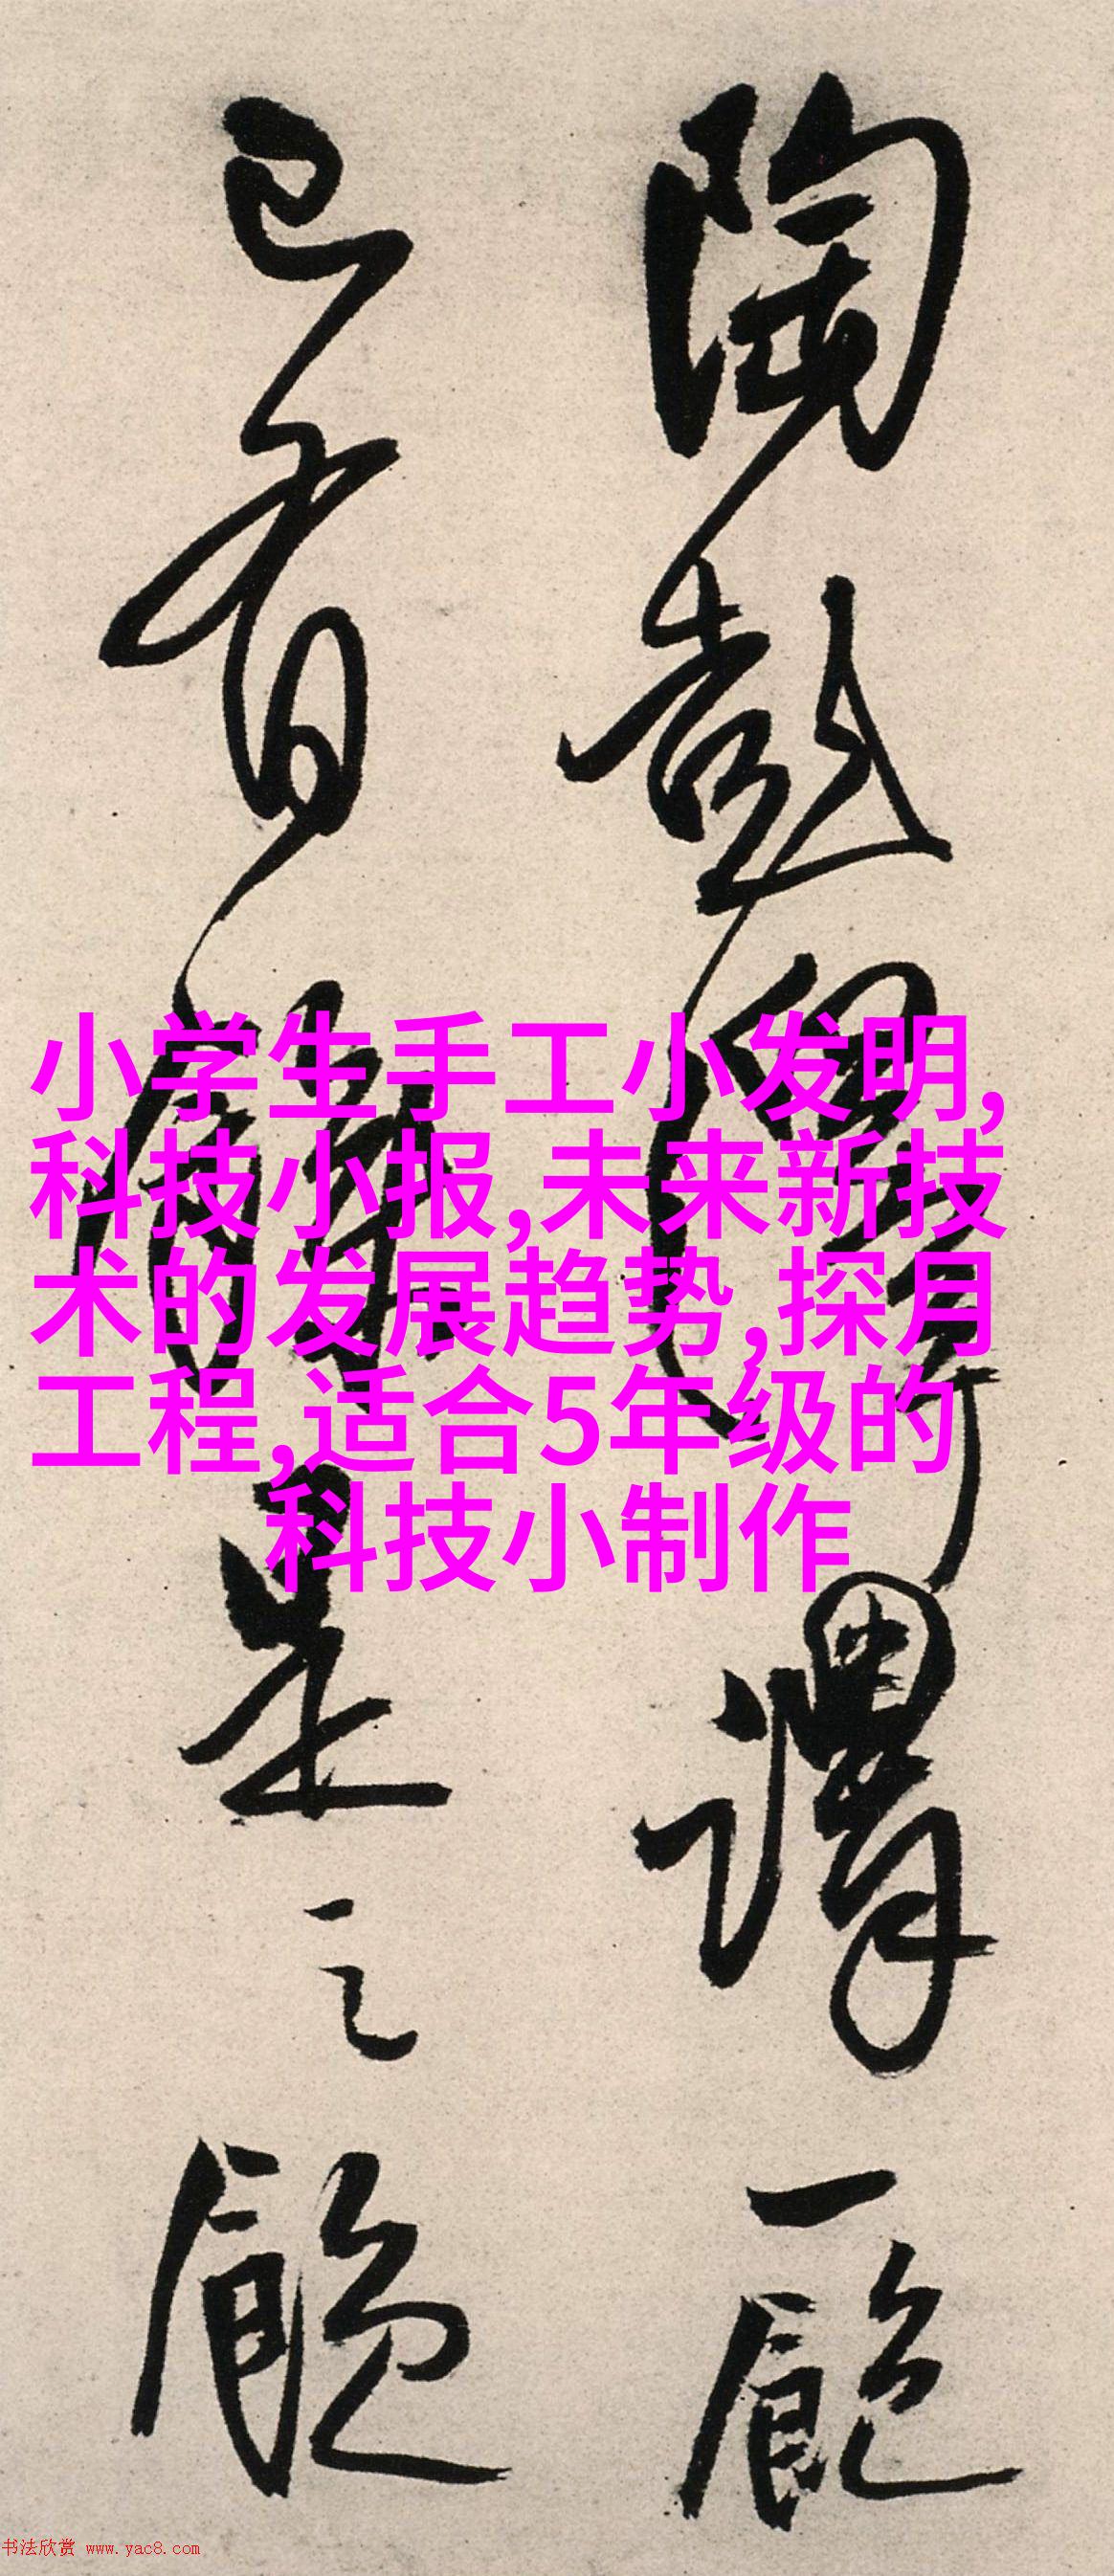 小学生手工小发明,
科技小报,未来新技
术的发展趋势,探月
工程,适合5年级的
科技小制作
陶彭泽谓一
已有
是之
书法欣赏 www.yac8.com